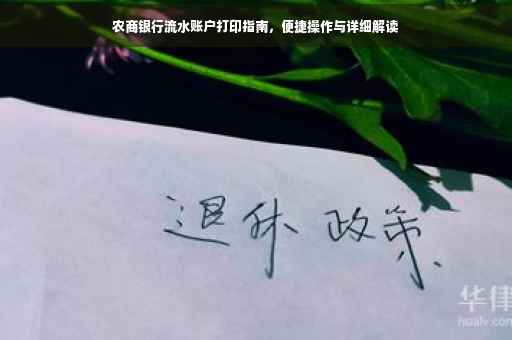 农商银行流水账户打印指南，便捷操作与详细解读
退休 政策
华律
hualv.com